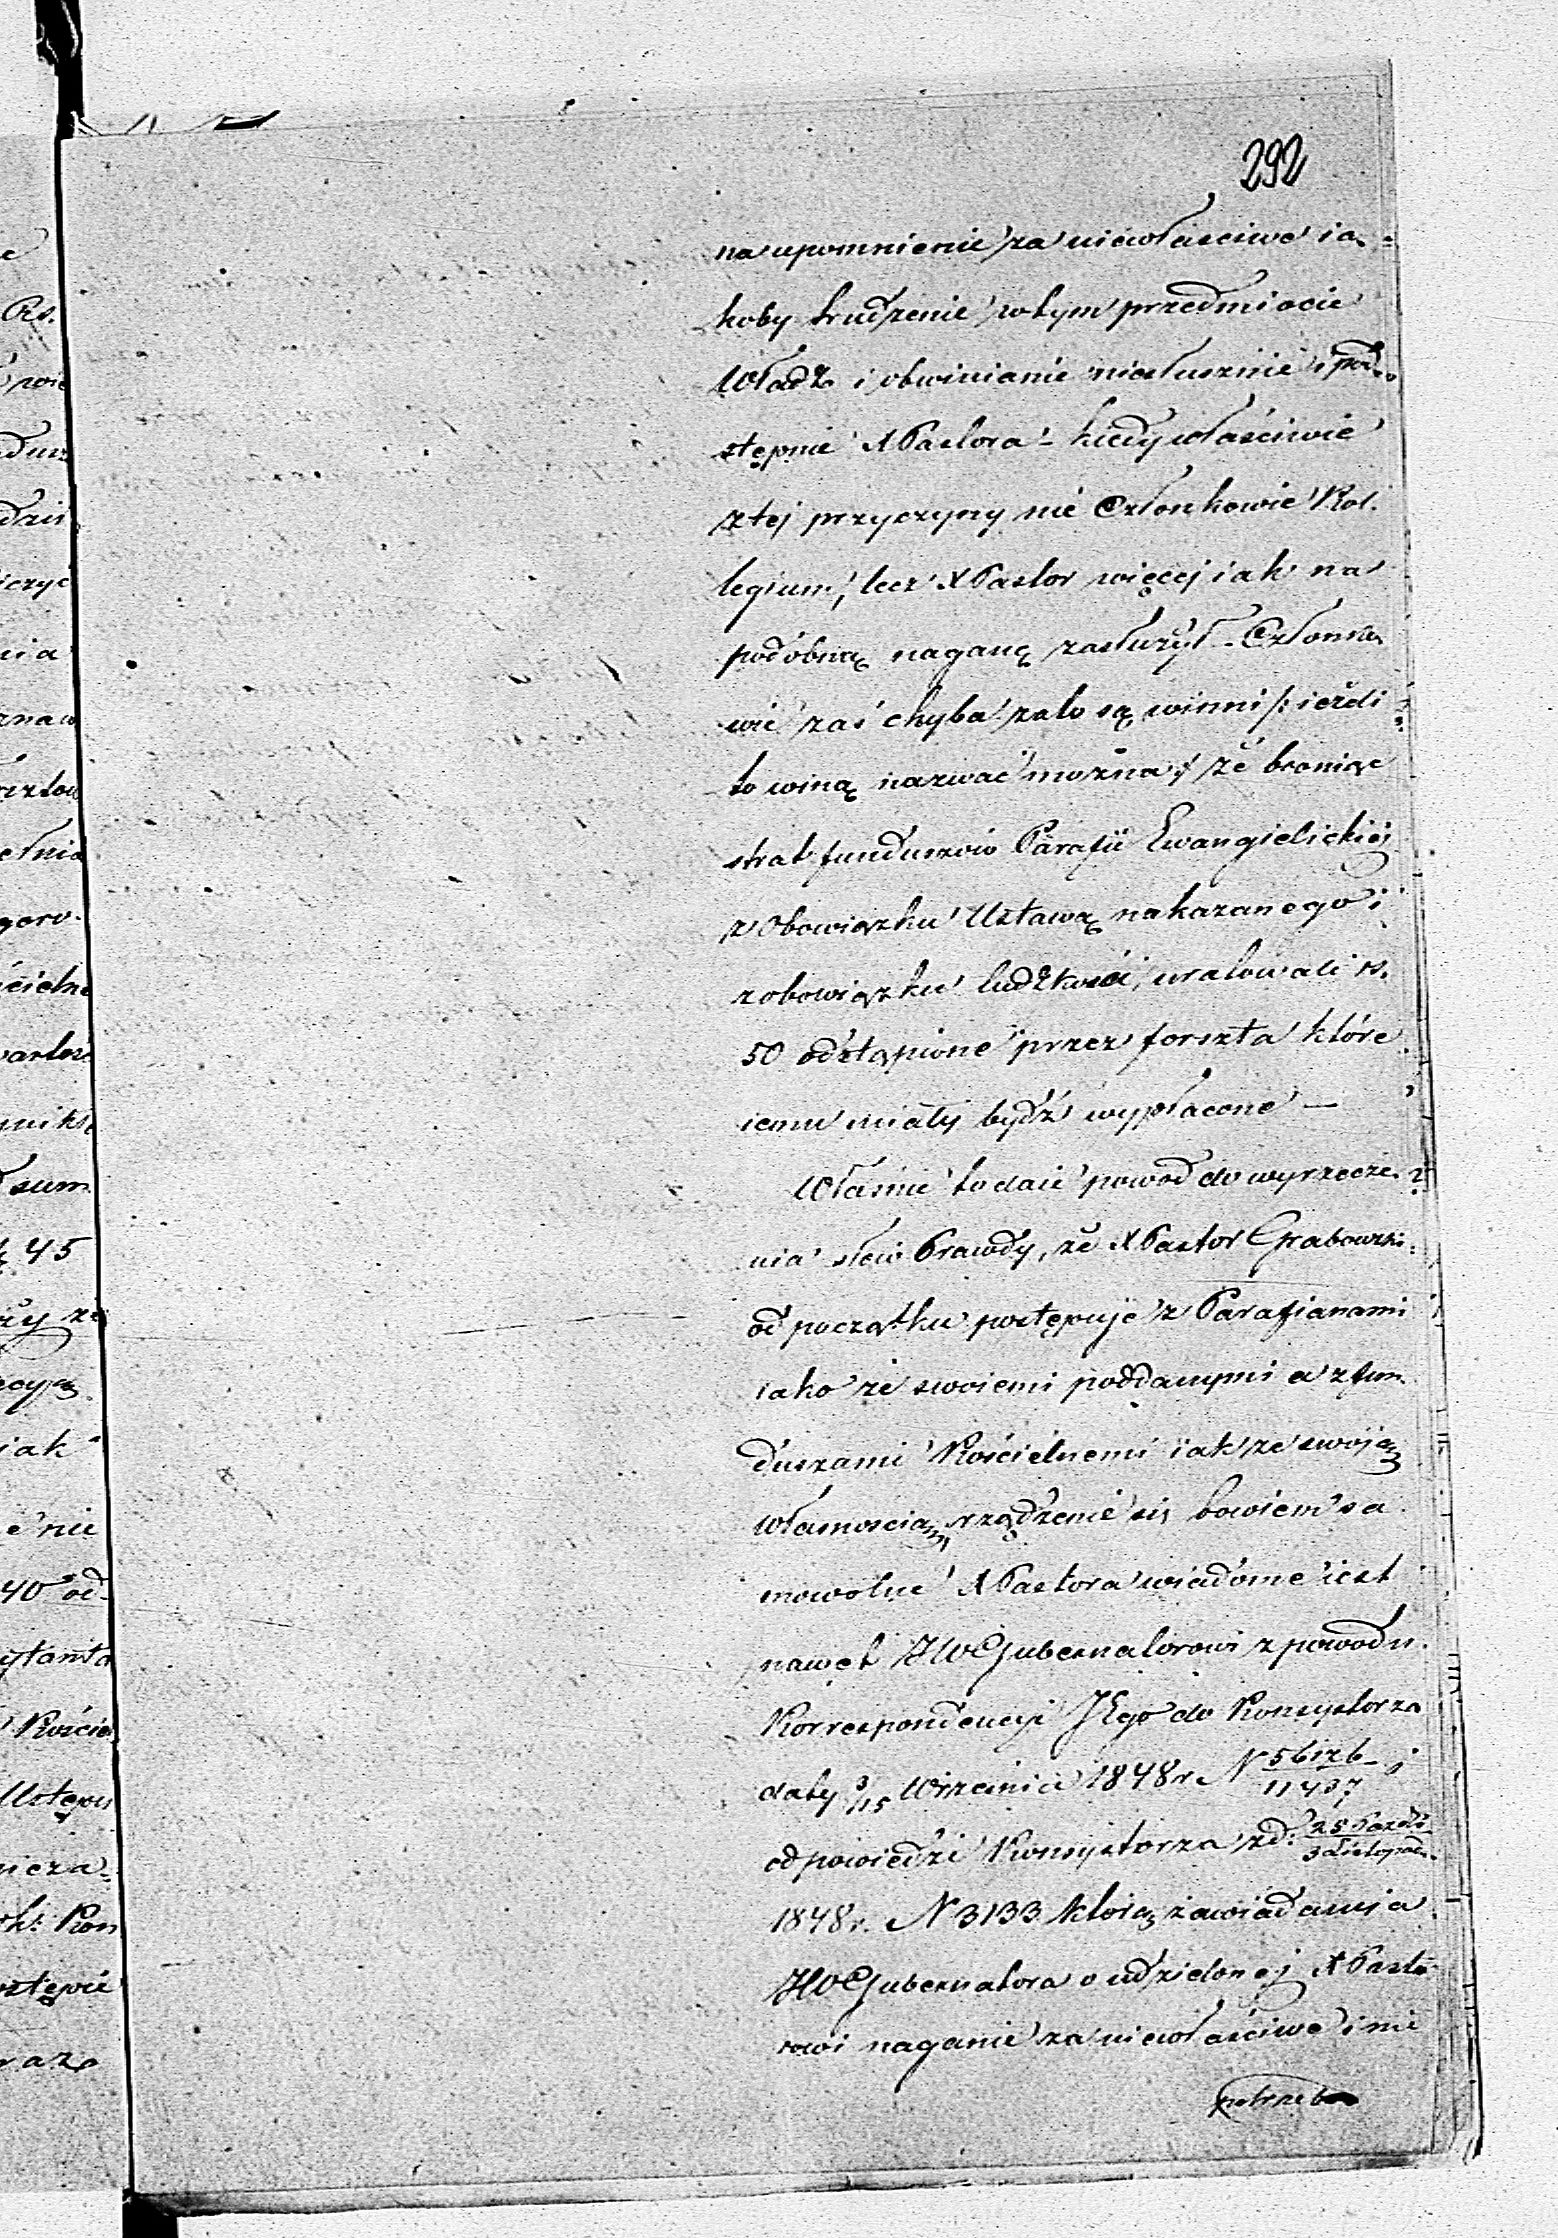 292
na upomnienie za niewłaściwe ia-
koby trudzenie w tym przedmiocie
Władz i obwinianie niesłusznie i pod-
stępnie XPastora – kiedy właściwie
z tej przyczyny nie Członkowie Kol.
legium, lecz XPastor więcej iak na
podobną naganę zasłużył – Członko
wie zaś chyba za to są winni /: ieżeli
to winą nazwać można :/ że broniąc
strat funduszów Parafii Ewangielickiej
z Obowiązku Ustawą nakazanego i
z obowiązku ludzkości, uratowali rs.
50 odstąpione przez forszta które
iemu miały bydź wypłacone —
Właśnie to daie powod do wyrzecze-
nia słów Prawdy, że XPastor Grabowski
od początku postępuje z Parafianami
iako ze swoiemi poddanymi a z fun-
duszami Kościelnemi iak ze swoją
własnoscią, rządzenie się bowiem sa
mowolne XPastora wiadome iest
nawet JWGubernatorowi z powodu
Korrespondencyi JEgo do Konsystorza
daty 3/15 Września 1848 r. N 56126/11437 i
odpowiedzi Konsystorza z d: 25 Paźdź/3 Listopad.
1848 r. N 3133 którą zawiadamia
JWGubernatora o udzielonej XPasto
rowi naganie za niewłaściwe i nie
potrzeb